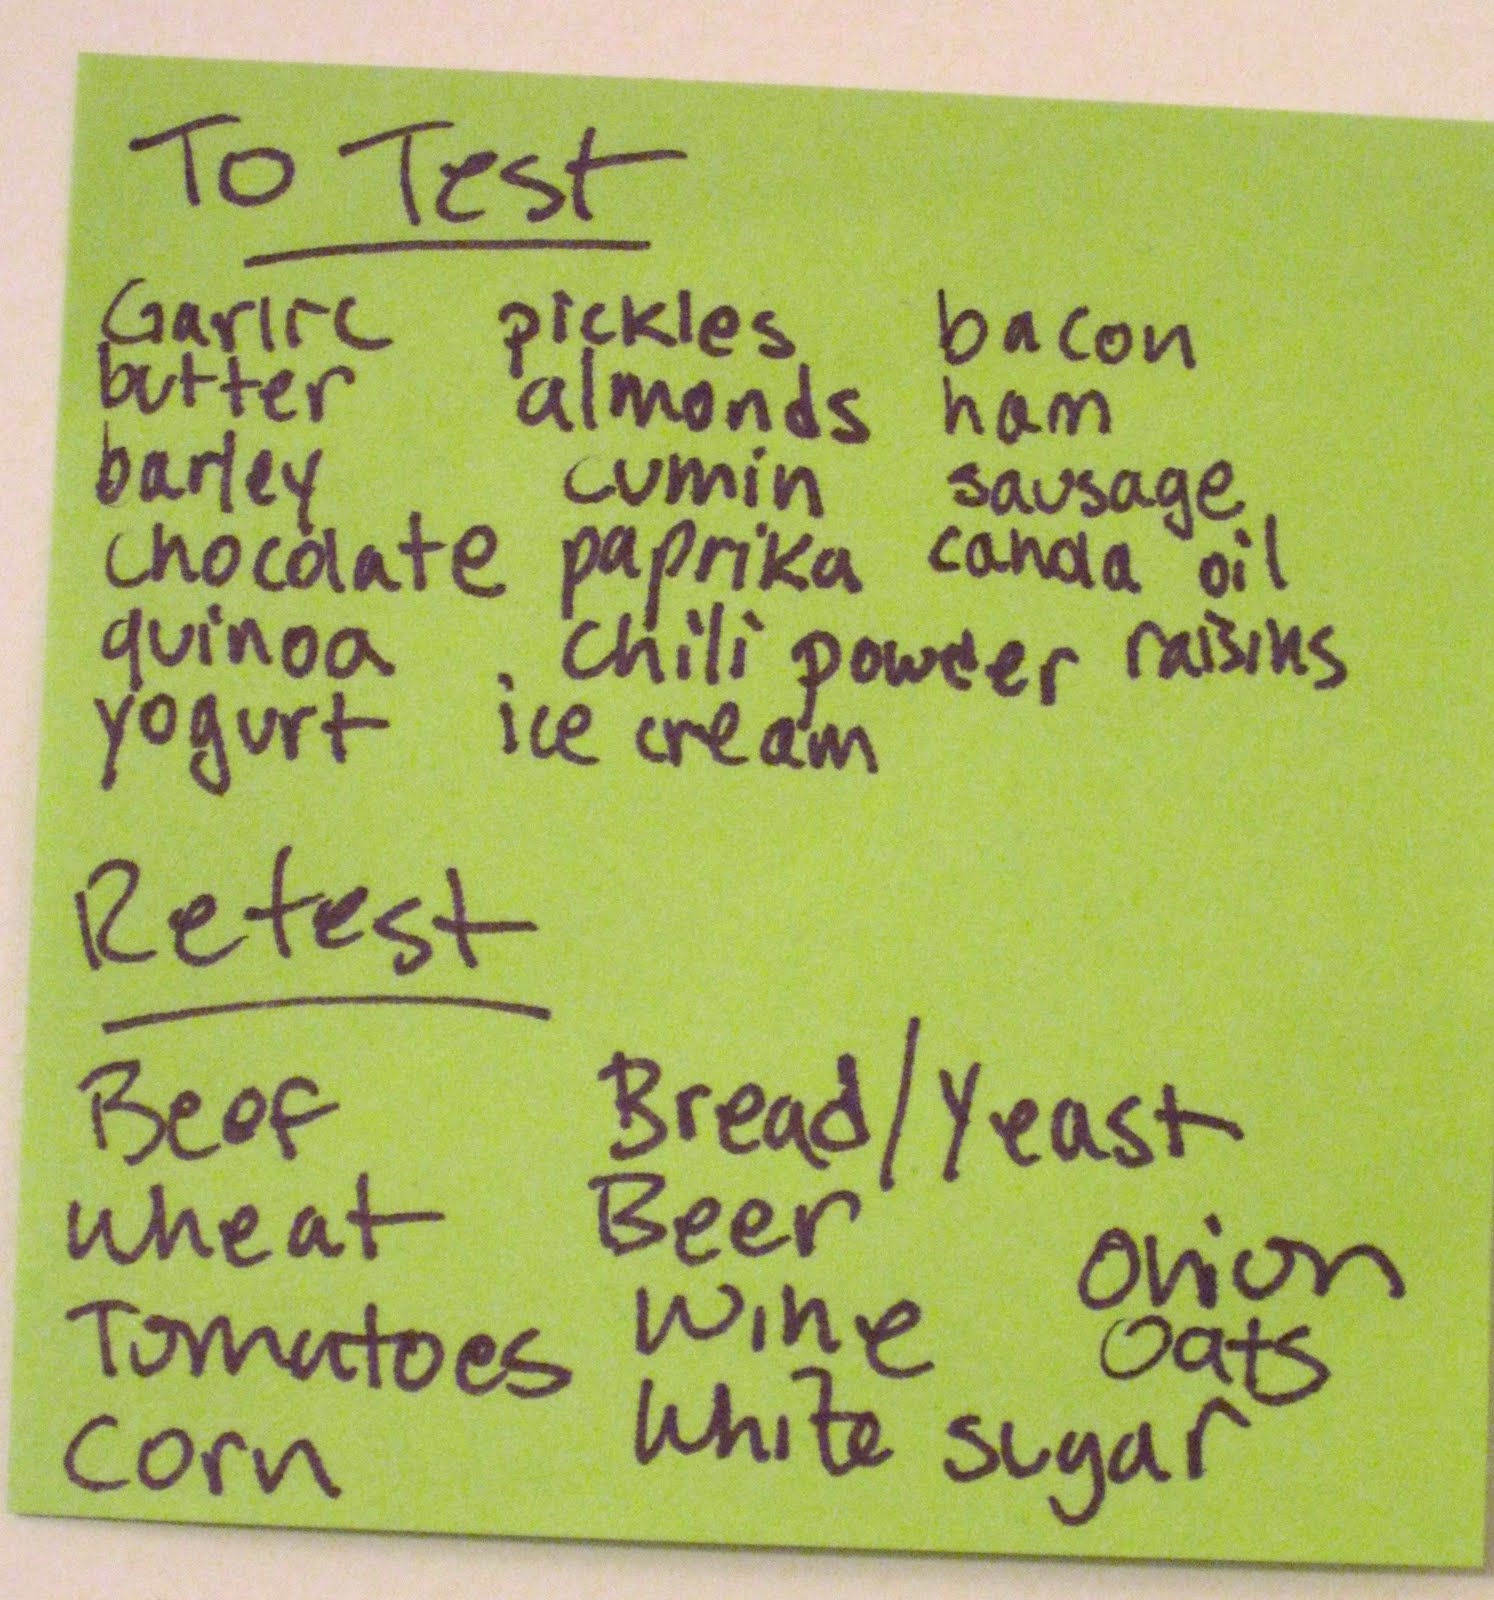 To Test
Garlic pickles bacon
butter almonds ham
barley cumin sausage
chocolate paprika canola oil
quinoa chili powder raisins
yogurt ice cream
Retest
Beef Bread/Yeast
Wheat Beer Onion
Tomatoes Wine Oats
Corn White sugar